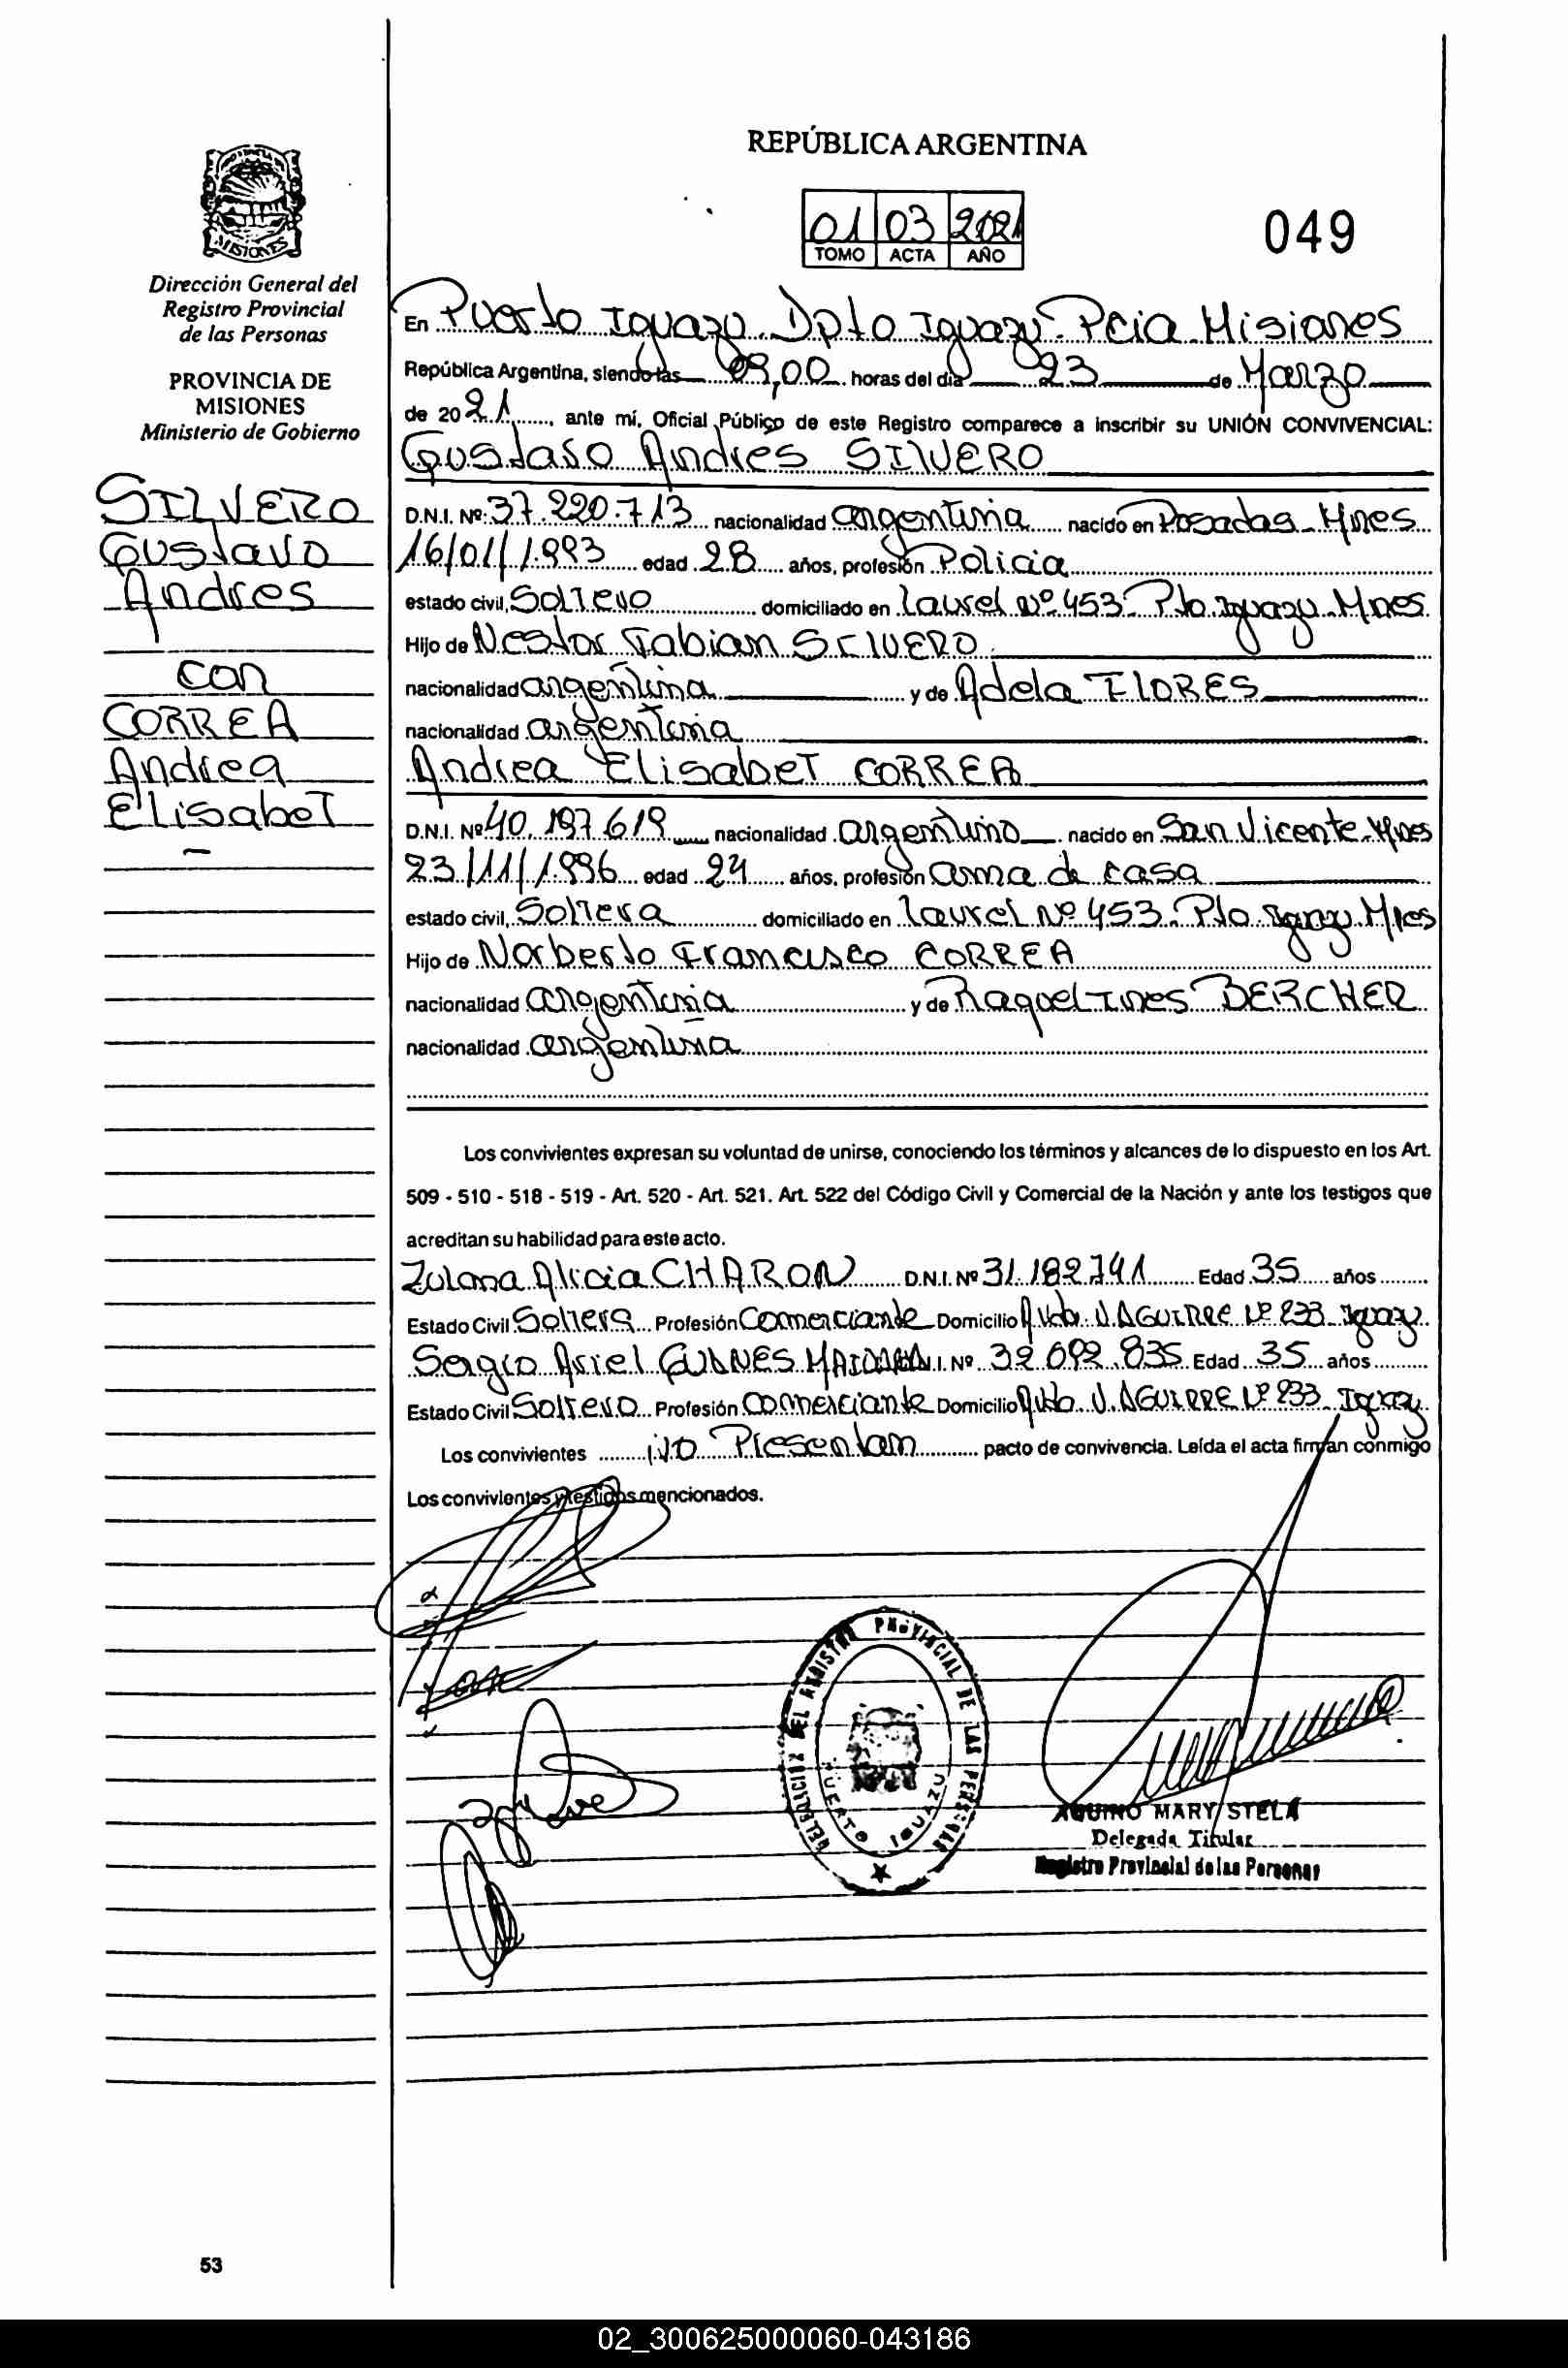 REPÚBLICA ARGENTINA
01 03 2021
TOMO ACTA AÑO
049
MISIONES
Dirección General del
Registro Provincial
de las Personas
PROVINCIA DE
MISIONES
Ministerio de Gobierno
SILVERO
Gustavo
Andres
con
CORREA
Andrea
Elisabet
En Puerto Iguazu. Dpto Iguazu. Pcia Misiones
República Argentina, siendo las 09,00 horas del día 23 de Marzo
de 2021, ante mí, Oficial Público de este Registro comparece a inscribir su UNIÓN CONVIVENCIAL:
Gustavo Andres SILVERO
D.N.I. Nº: 37.220.713 nacionalidad argentina nacido en Posadas - Mnes
16/01/1.993 edad 28 años, profesión Policia
estado civil, Soltero domiciliado en Laurel Nº 453 - Pto. Iguazu. Mnes
Hijo de Nestor Fabian SILVERO
nacionalidad argentina y de Adela FLORES
nacionalidad argentina
Andrea Elisabet CORREA
D.N.I. Nº 40.197.619 nacionalidad argentina nacido en San Vicente - Mnes
23/11/1.996 edad 24 años, profesión ama de casa
estado civil, Soltera domiciliado en Laurel Nº 453. Pto. Iguazu. Mnes
Hijo de Norberto Francisco CORREA
nacionalidad argentina y de Raquel Ines BERCHER
nacionalidad argentina
Los convivientes expresan su voluntad de unirse, conociendo los términos y alcances de lo dispuesto en los Art.
509 - 510 - 518 - 519 - Art. 520 - Art. 521. Art. 522 del Código Civil y Comercial de la Nación y ante los testigos que
acreditan su habilidad para este acto.
Zulona Alicia CHARON D.N.I. Nº 31.182.741 Edad 35 años
Estado Civil Soltera Profesión Comerciante Domicilio Avda. V. AGUIRRE Nº 233 Iguazu
Sergio Ariel D.N.I. Nº 32.092.835 Edad 35 años
Estado Civil Soltero Profesión Comerciante Domicilio Avda. V. AGUIRRE Nº 233 Iguazu
Los convivientes no Presentan pacto de convivencia. Leída el acta firman conmigo
Los convivientes y testigos mencionados.
DELEGACION DEL REGISTRO PROVINCIAL DE LAS PERSONAS
PUERTO IGUAZU
AQUINO MARY STELA
Delegada Titular
Registro Provincial de las Personas
53
02_300625000060-043186